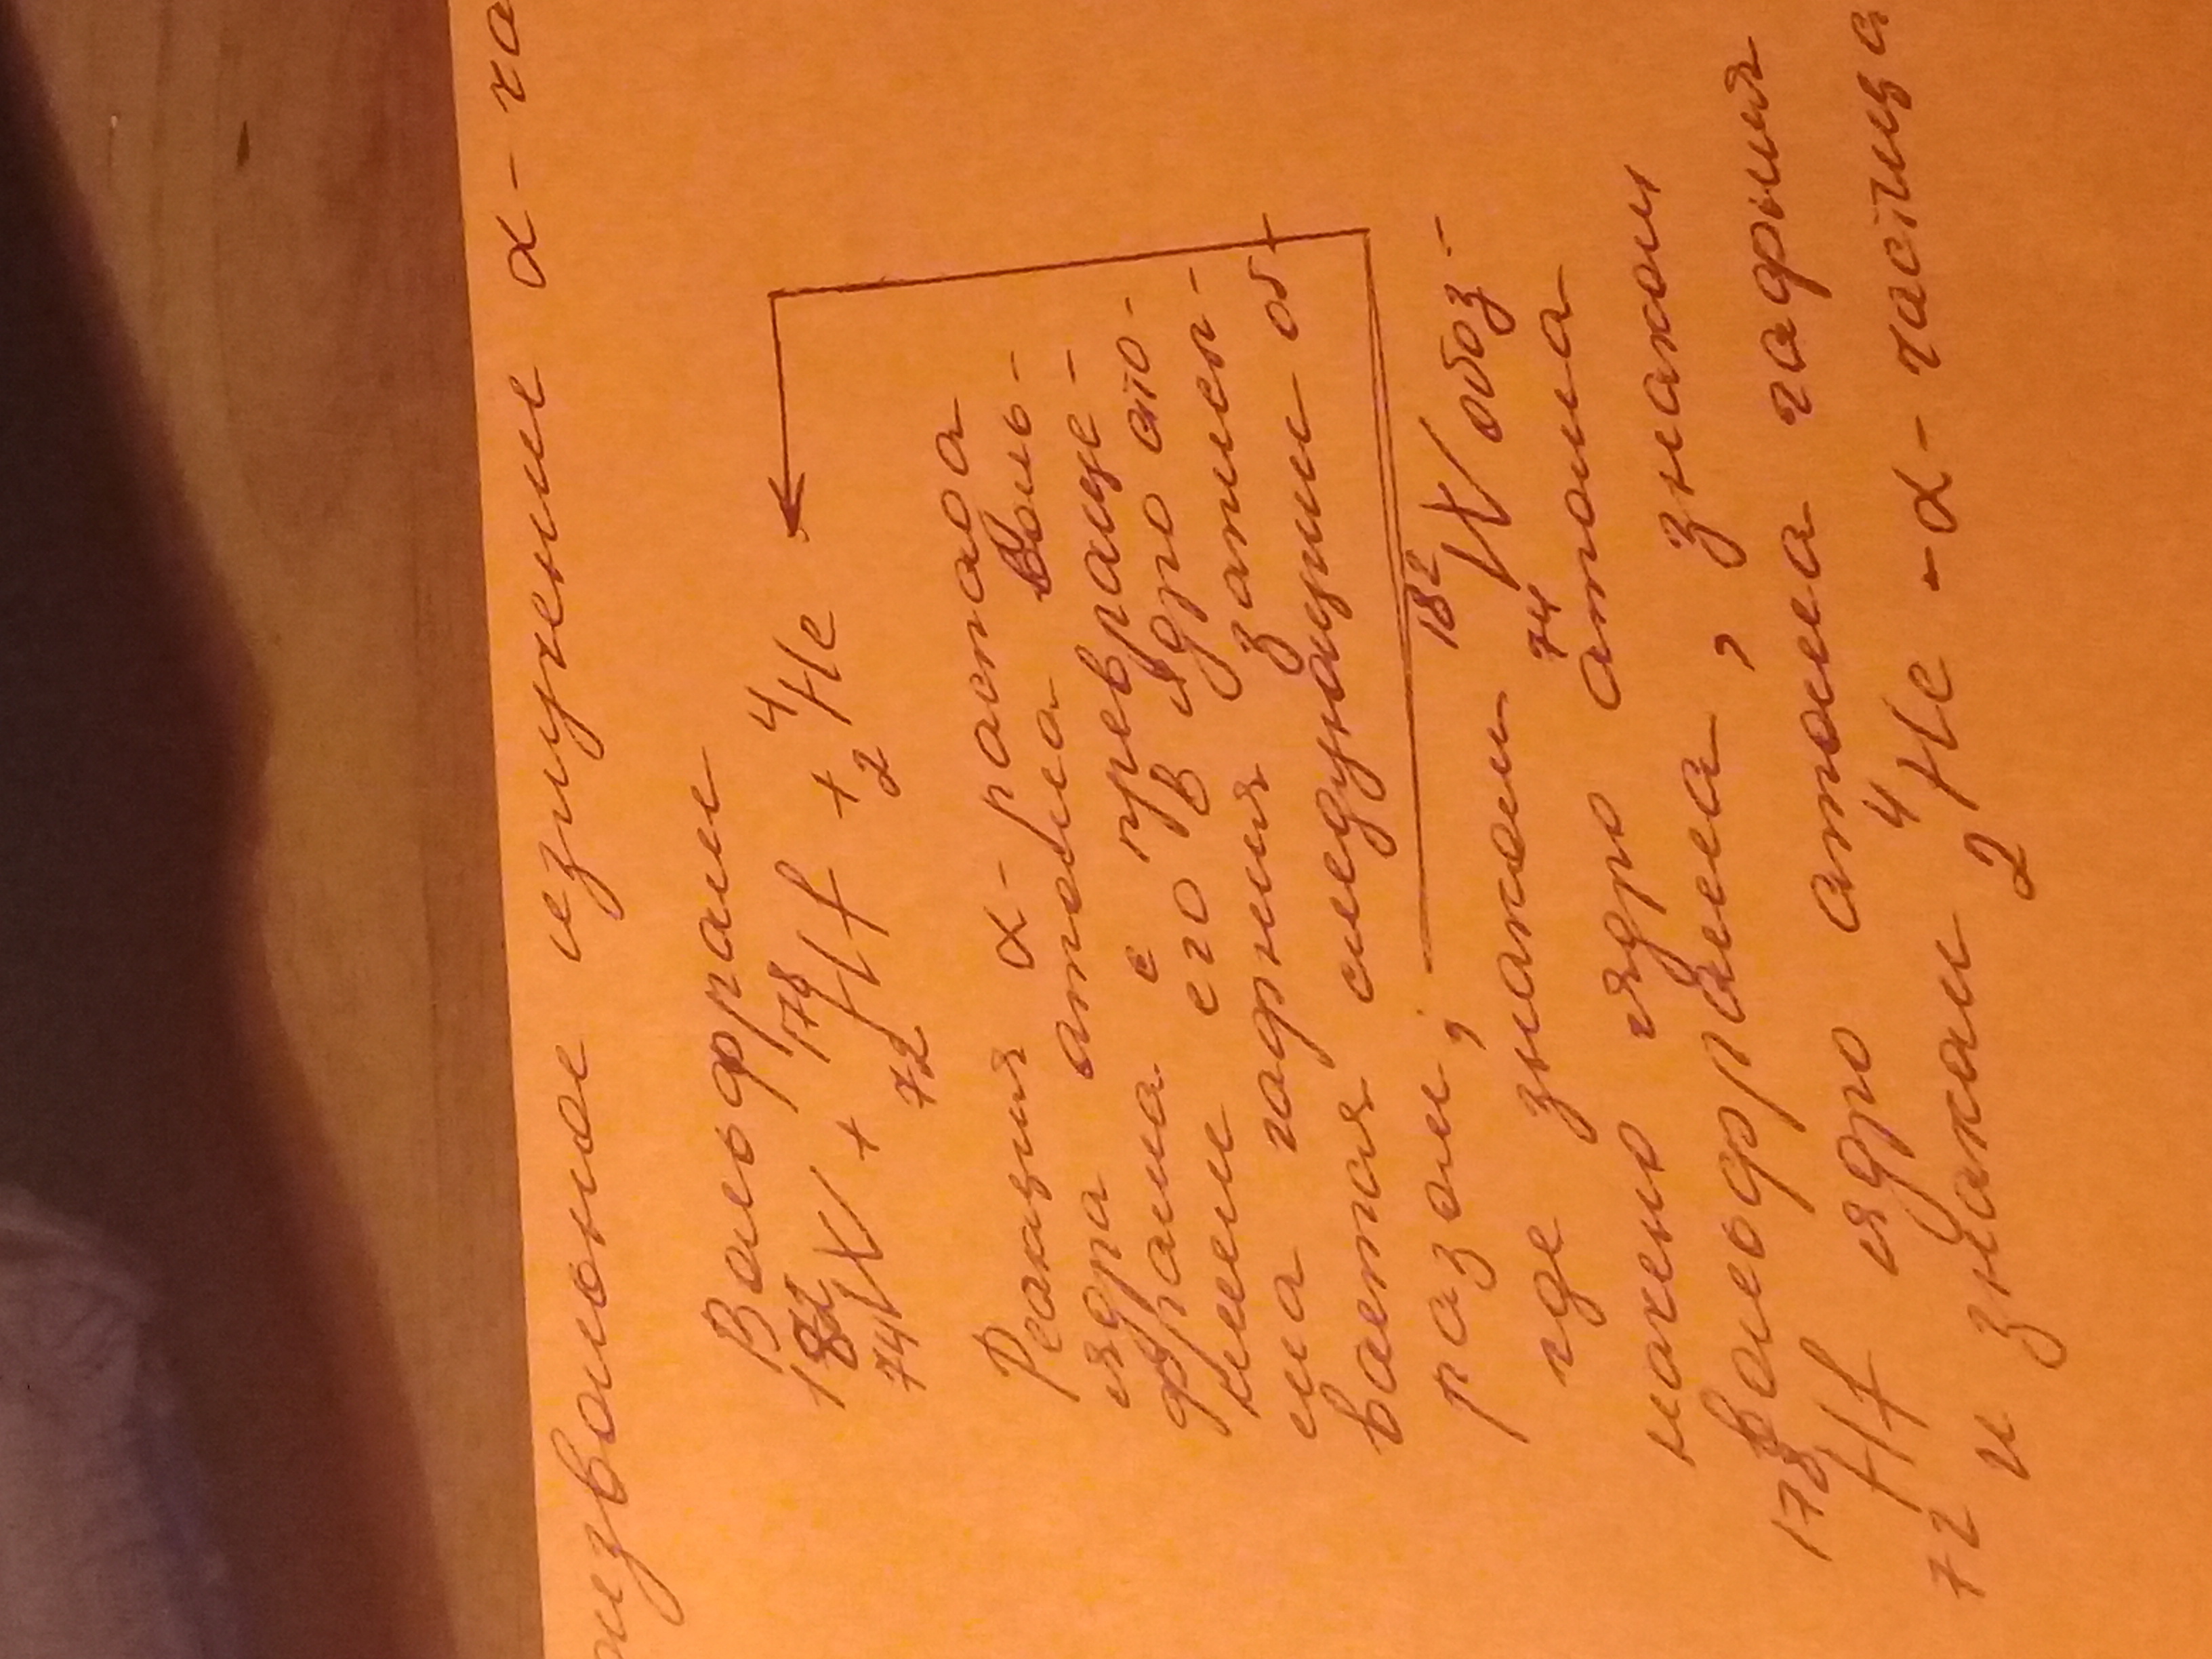 оизвольное излучение α-ча
Вольфрам
¹⁸²₇₄W + ¹⁷⁸₇₂Hf + ⁴₂He
Реакция α-распада
ядра атома воль-
фрама с превраще-
нием его в ядро ато-
ма гафния записы-
вается следующим об-
разом;
где знаком ¹⁸²₇₄W обоз-
начено ядро атома
вольфрама, знаком
¹⁷⁸₇₂Hf ядро атома гафния
и знаком ⁴₂He - α-частица